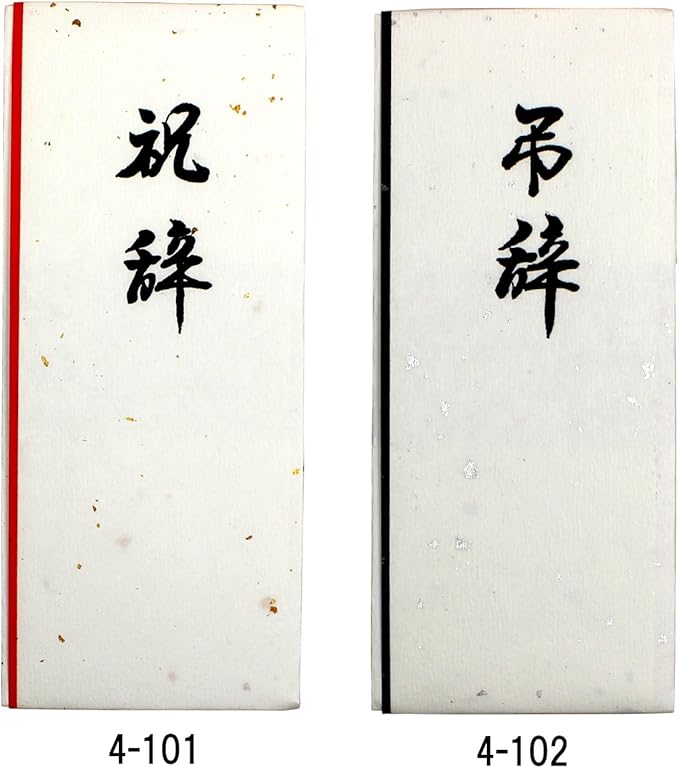 祝辞
弔辞
4-101
4-102